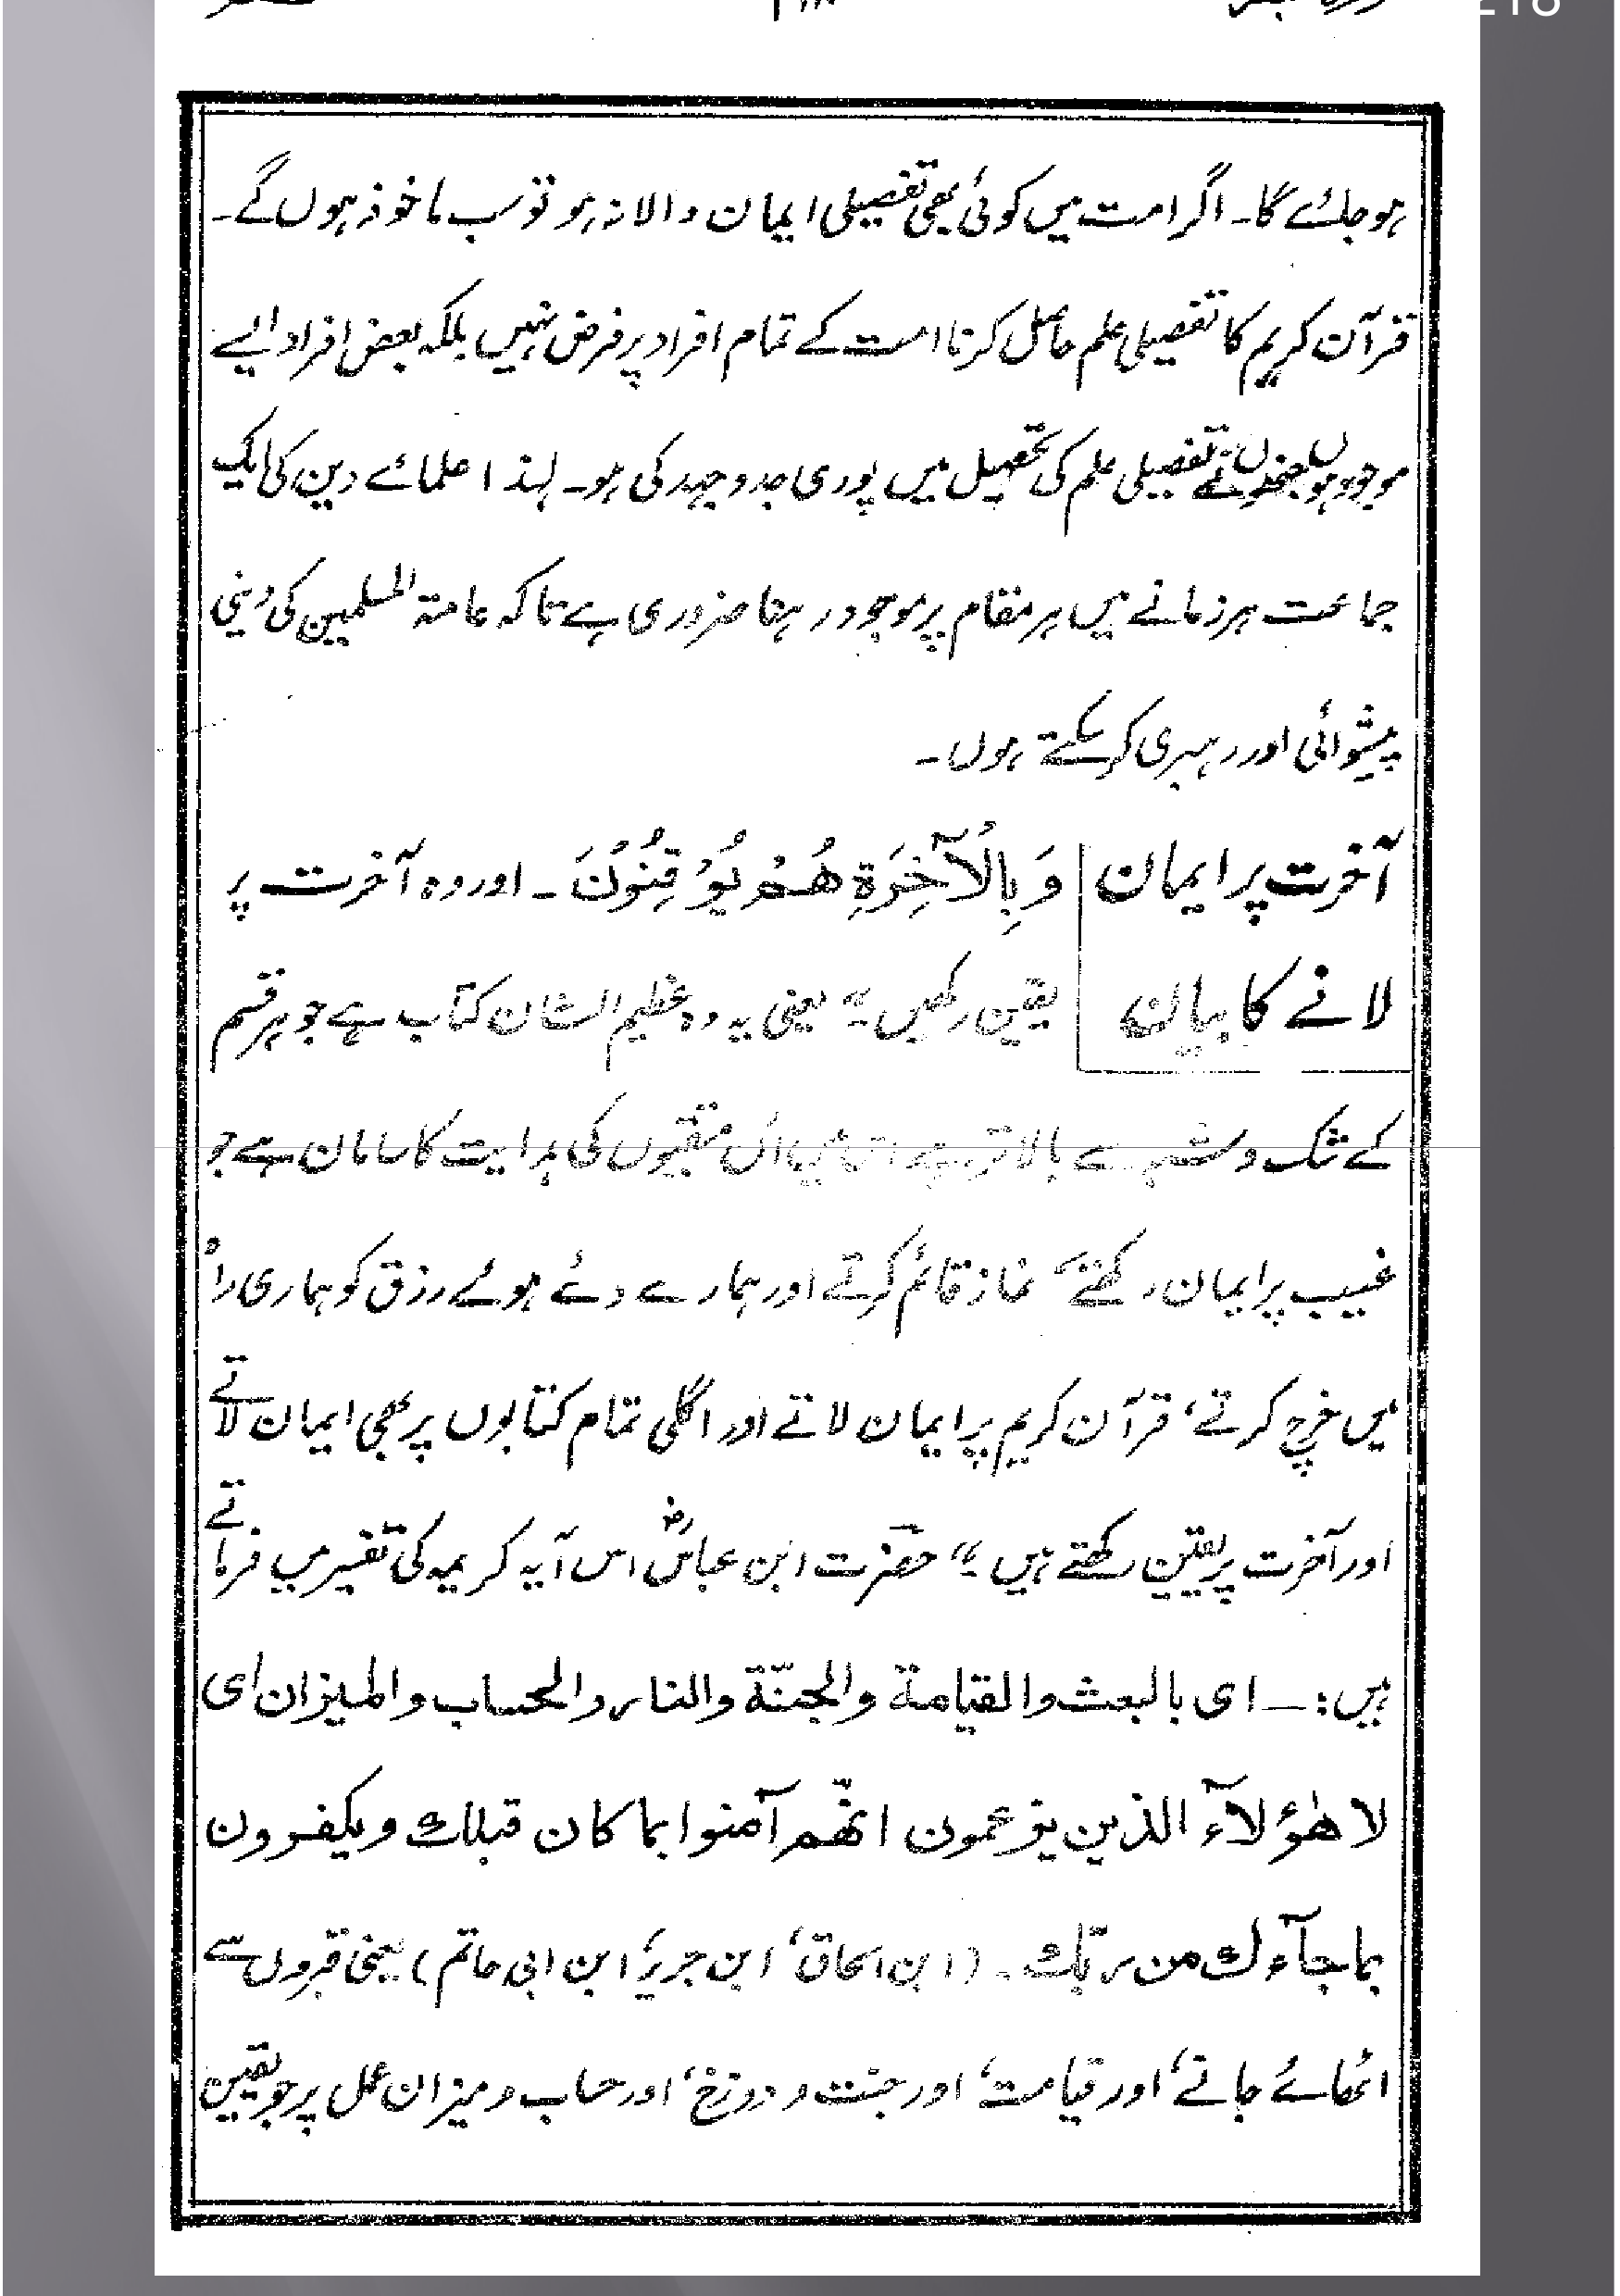 ہوجائے گا۔ اگر امت میں کوئی بھی تفصیلی ایمان والا نہ ہو تو سب ماخوذ ہوں گے۔
قرآن کریم کا تفصیلی علم حاصل کرنا امت کے تمام افراد پر فرض نہیں بلکہ بعض افراد ایسے
موجود ہوں جنھوں نے تفصیلی علم کی تحصیل میں پوری جدوجہد کی ہو۔ لہذا علمائے دین کی ایک
جماعت ہر زمانے میں ہر مقام پر موجود رہنا ضروری ہے تاکہ عامۃ المسلمین کی دینی
پیشوائی اور رہبری کرسکتے ہوں۔
آخرت پر ایمان وَبِالْآخِرَةِ هُمْ يُوْقِنُوْنَ۔ اور وہ آخرت پر
لانے کا بیان یقین رکھیں۔“ یعنی یہ وہ عظیم الشان کتاب ہے جو ہر قسم
کے شک و شبہہ سے بالاتر ہے اس میں ان متقیوں کی ہدایت کا سامان ہے جو
غیب پر ایمان رکھتے، نماز قائم کرتے اور ہمارے دئے ہوئے رزق کو ہماری راہ
میں خرچ کرتے، قرآن کریم پر ایمان لاتے اور اگلی تمام کتابوں پر بھی ایمان لاتے
اور آخرت پر یقین رکھتے ہیں۔“ حضرت ابن عباسؓ اس آیہ کریمہ کی تفسیر میں فرماتے
ہیں:۔ ای بالبعث والقیامة والجنّة والنار والحساب والمیزان ای
لا هٰؤلآء الذین یزعمون انّهم آمنوا بما کان قبلك ویکفرون
بما جآءك من ربّك۔ (ابن اسحاق، ابن جریر، ابن ابی حاتم) یعنی قبروں سے
اٹھائے جانے، اور قیامت، اور جنت و دوزخ، اور حساب و میزان عمل پر جو یقین